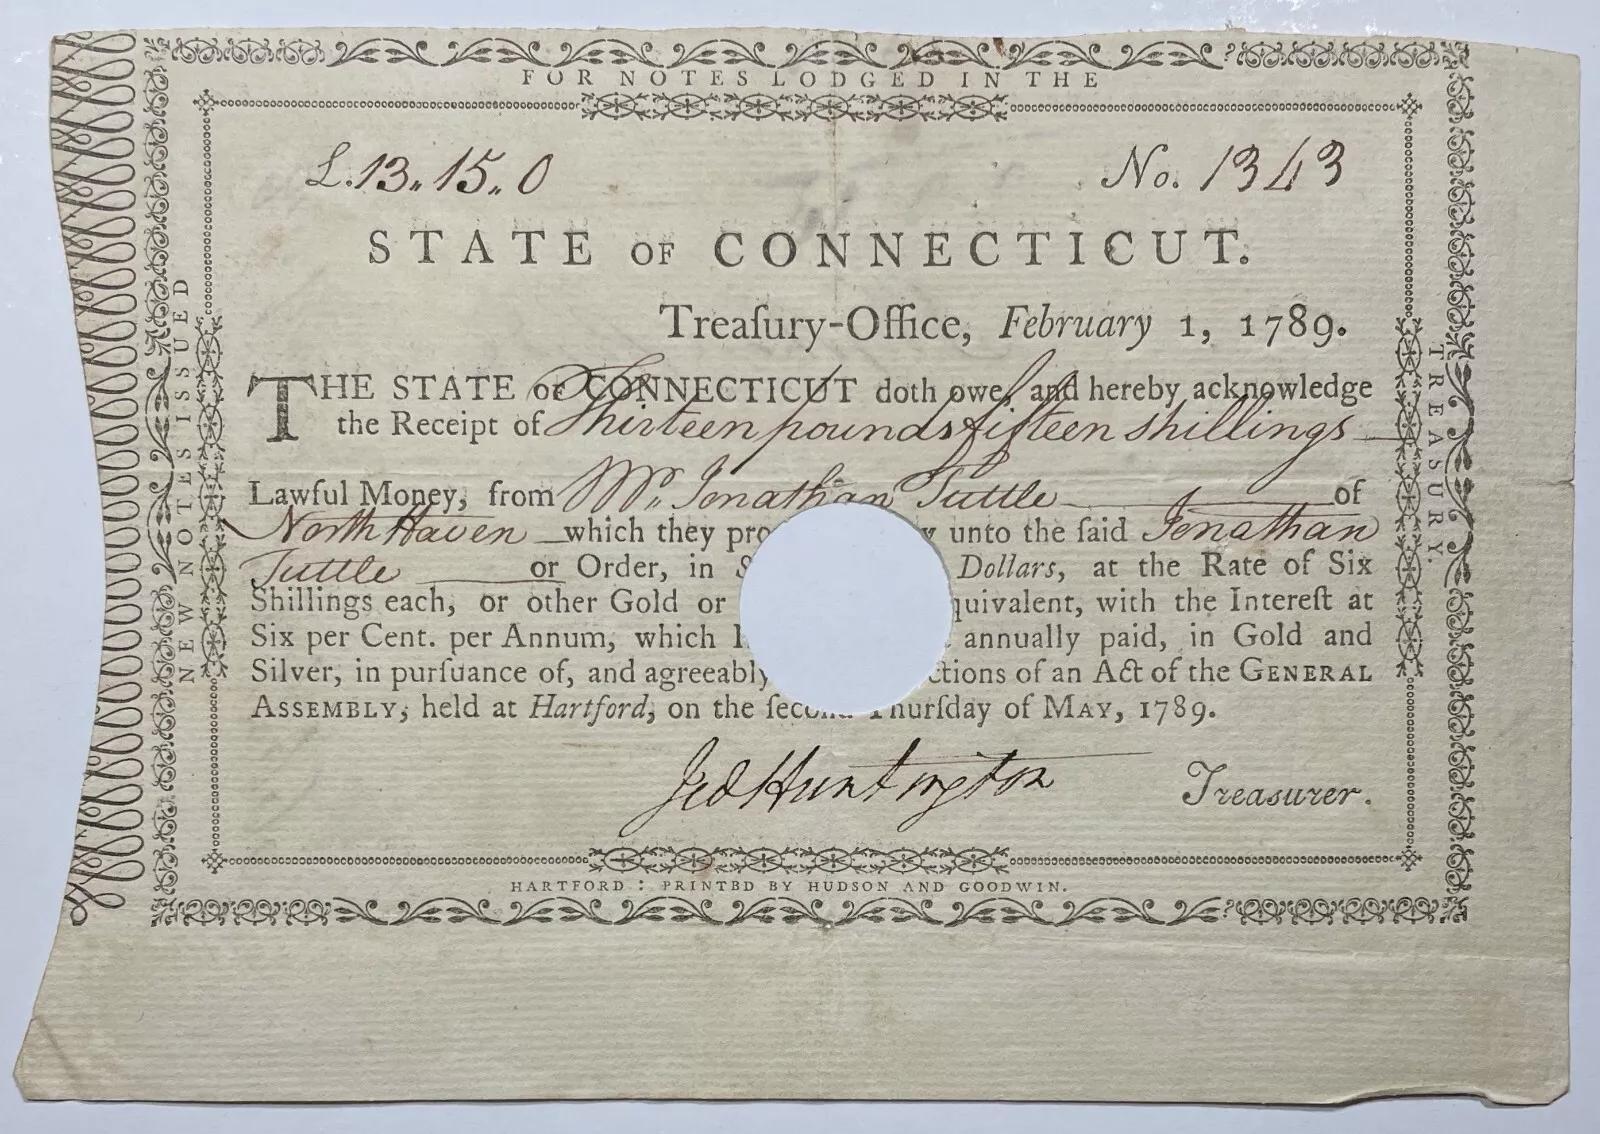 FOR NOTES LODGED IN THE
£.13.,15.,0 No. 1343
STATE OF CONNECTICUT.
Treaſury-Office, February 1, 1789.
THE STATE OF CONNECTICUT doth owe, and hereby acknowledge
the Receipt of Thirteen pounds fifteen shillings
Lawful Money, from Mr. Jonathan Tuttle of
North Haven which they pro y unto the ſaid Jonathan
Tuttle or Order, in S Dollars, at the Rate of Six
Shillings each, or other Gold or quivalent, with the Intereſt at
Six per Cent. per Annum, which annually paid, in Gold and
Silver, in purſuance of, and agreeably ctions of an Act of the GENERAL
ASSEMBLY, held at Hartford, on the ſecond Thurſday of MAY, 1789.
Jed Huntington Treasurer.
HARTFORD: PRINTED BY HUDSON AND GOODWIN.
NEW NOTES ISSUED
TREASURY.